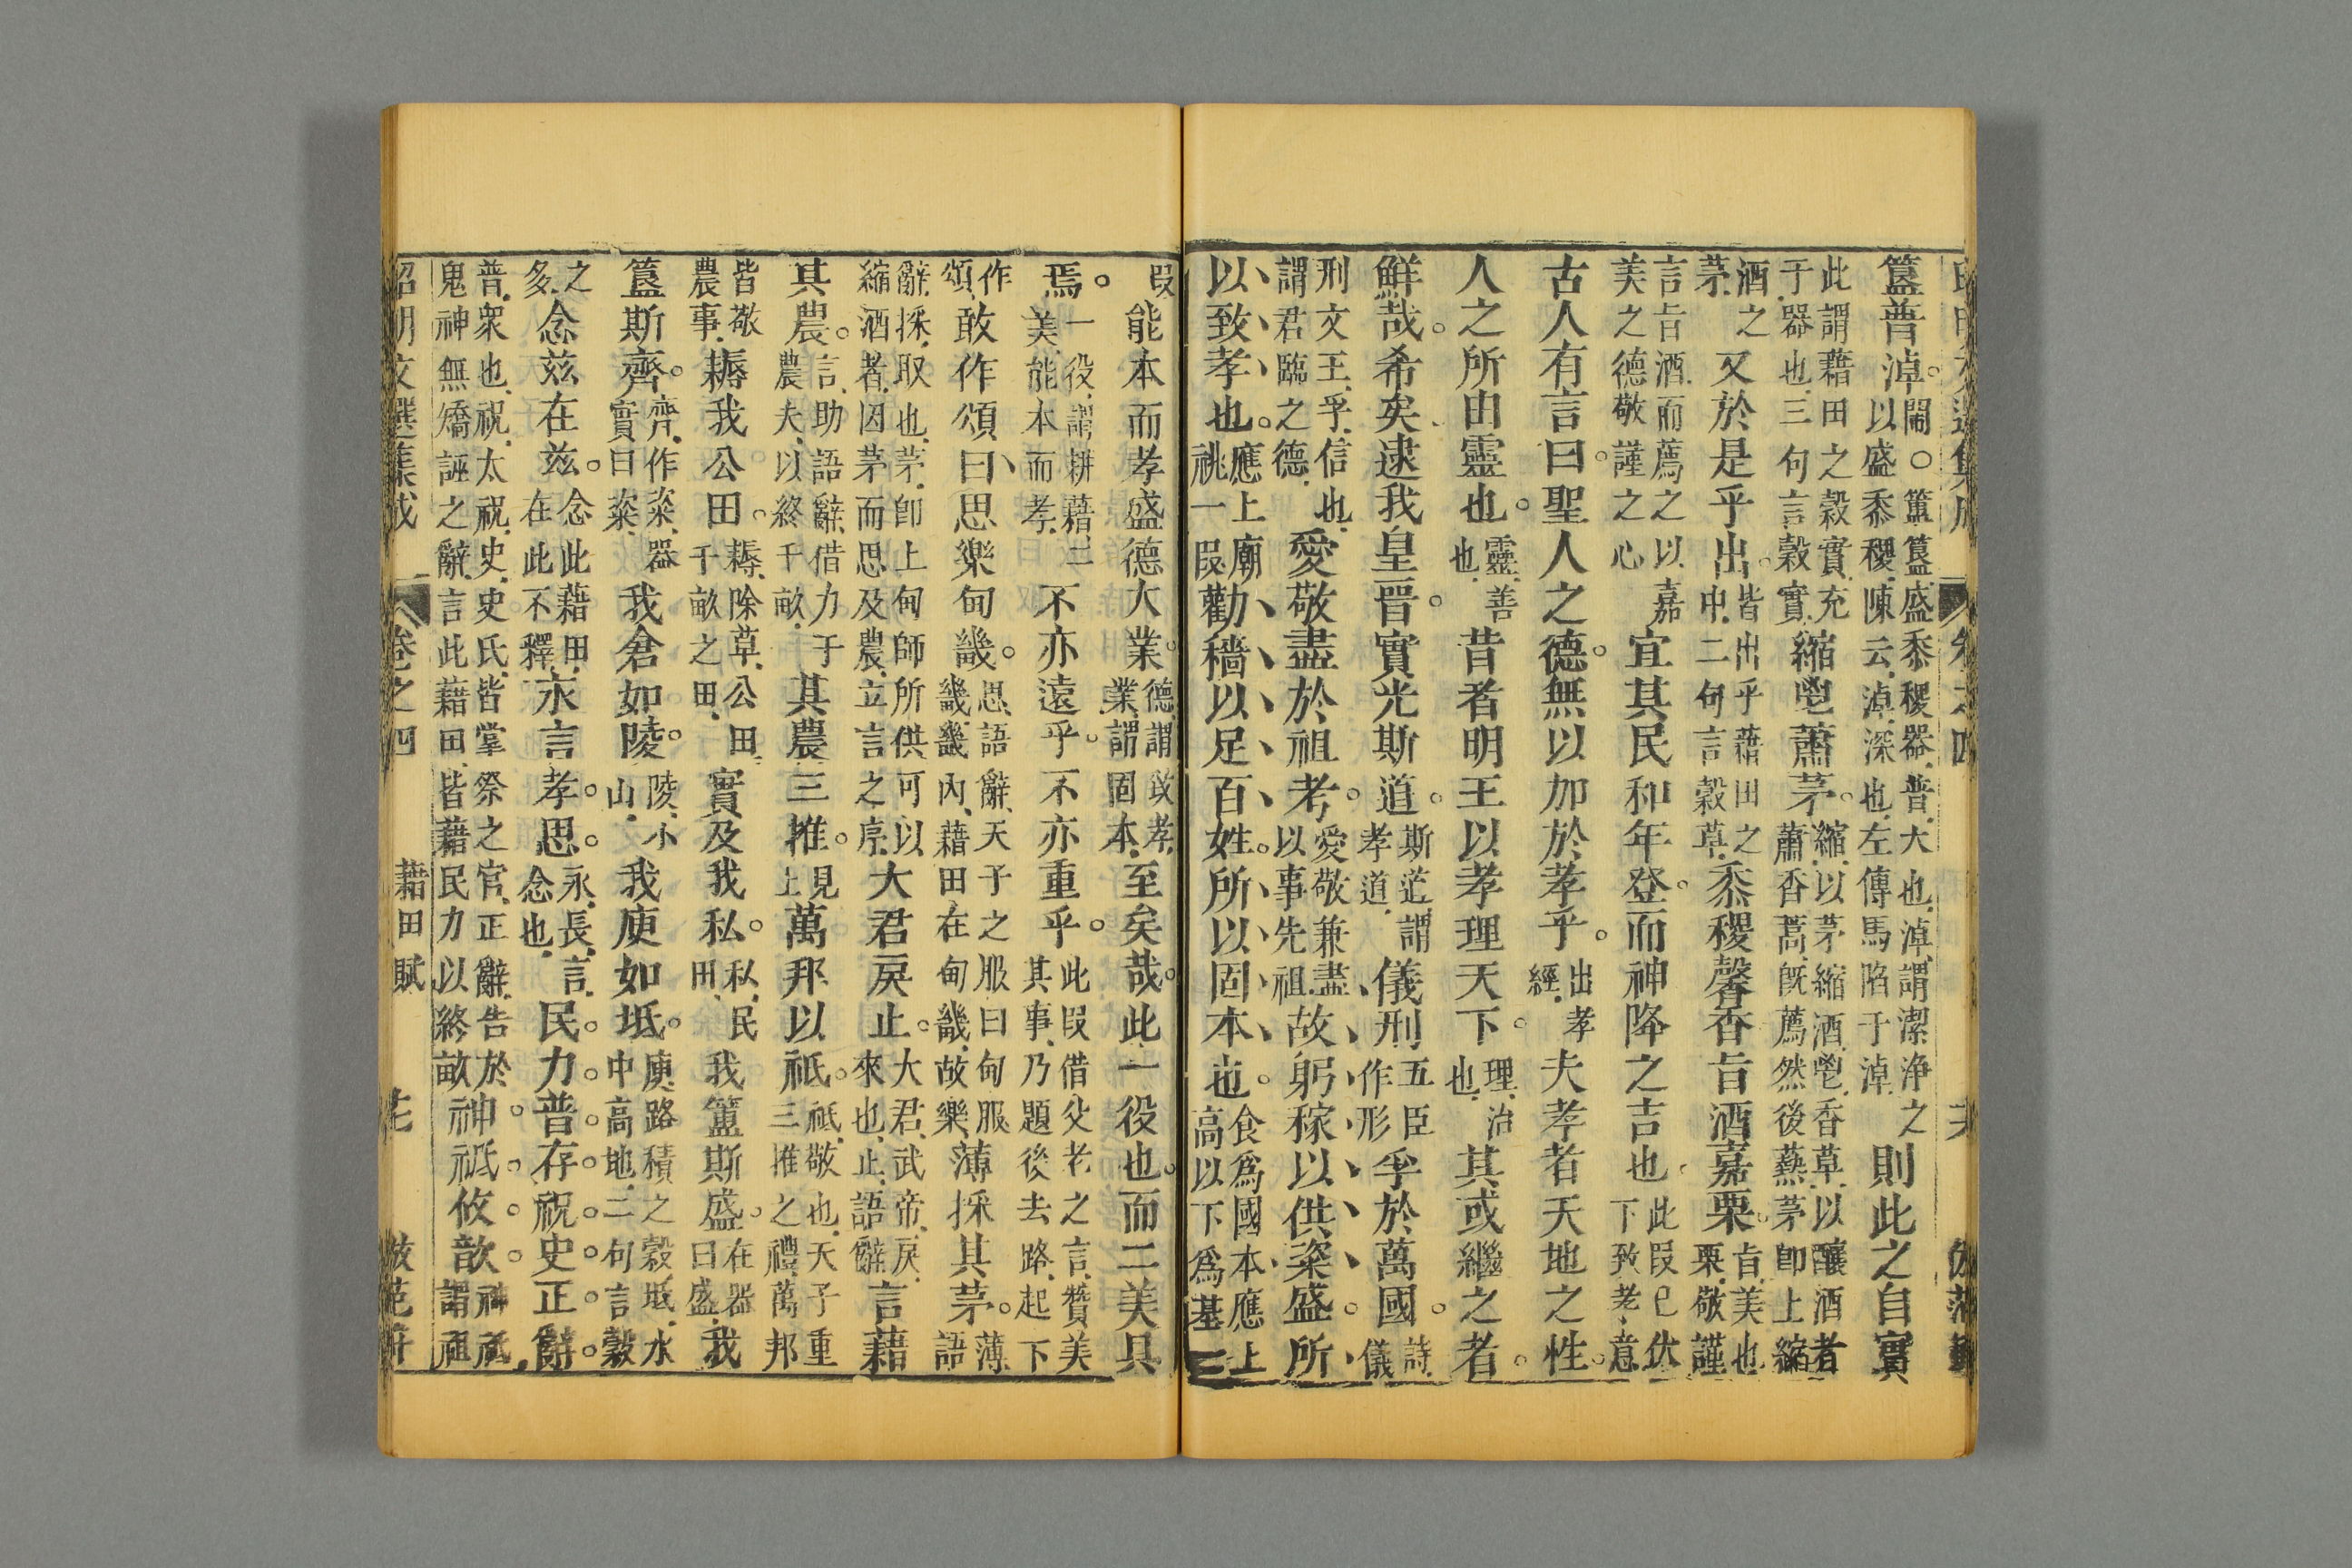 簠普淖閙○簠簋盛黍稷器普大也淖謂潔淨之以盛黍稷陳云淖深也左傳馬陷于淖則此之自實
此謂藉田之穀實充于器也三句言穀實縮鬯蕭茅縮以茅縮酒鬯香草以釀酒者蕭香蒿既薦然後爇茅卽上縮
酒之茅又於是乎出皆出乎藉田之中二句言穀草黍稷馨香旨酒嘉栗旨美也栗敬謹
言旨酒而薦之以嘉美之德敬謹之心宜其民和年登而神降之吉也此叚已伏下致孝意
古人有言曰聖人之德無以加於孝乎出孝經夫孝者天地之性
人之所由靈也靈善也昔者明王以孝理天下理治也其或繼之者
鮮哉希矣逮我皇晉實光斯道斯道謂孝道儀刑五臣作形孚於萬國詩儀
刑文王孚信也謂君臨之德愛敬盡於祖考愛敬兼盡以事先祖故躬稼以供粢盛所
以致孝也應上廟祧一叚勸穡以足百姓所以固本也食爲國本應上高以下爲基二
叚能本而孝盛德大業德謂致孝業謂固本至矣哉此一役也而二美具
焉一役謂耕藉二美能本而孝不亦遠乎不亦重乎此叚借父老之言贊美其事乃題後去路起下
作頌敢作頌曰思樂甸畿思語辭天子之服曰甸服畿畿內藉田在甸畿故樂薄採其茅薄語
辭採取也茅卽上甸師所供可以縮酒者因茅而思及農立言之序大君戾止大君武帝戾來也止語辭言藉
其農言助語辭借力于農夫以終千畝其農三推見上萬邦以祗祗敬也天子重三推之禮萬邦
皆敬農事耨我公田耨除草公田千畝之田實及我私私民田我簠斯盛在器曰盛我
簋斯齊齊作粢器實曰粢我倉如陵陵小山我庾如坻庾路積之穀坻水中高地二句言穀
之多念茲在茲念此藉田在此不釋永言孝思永長言念也民力普存祝史正辭
普衆也祝太祝史史氏皆掌祭之官正辭告於鬼神無矯誣之辭言此藉田皆藉民力以終畝神祗攸歆神祗謂祖
昭明文選集成 卷之四 藉田賦